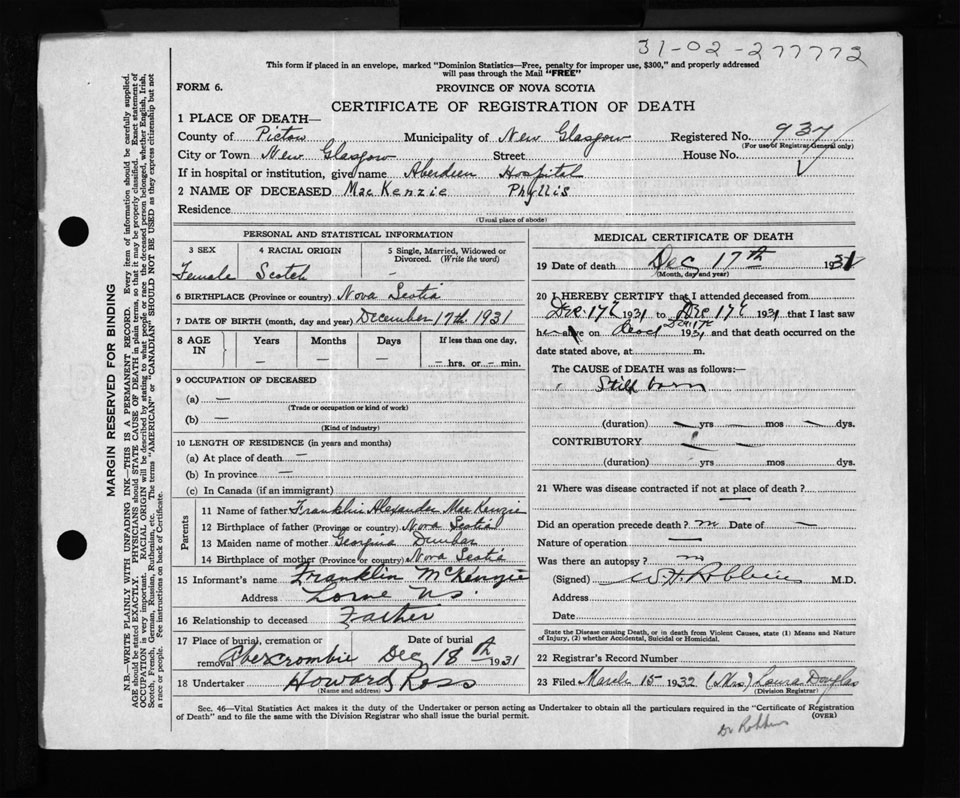 31-02-277772
This form if placed in an envelope, marked "Dominion Statistics—Free, penalty for improper use, $300," and properly addressed
will pass through the Mail "FREE"
FORM 6.
PROVINCE OF NOVA SCOTIA
CERTIFICATE OF REGISTRATION OF DEATH
1 PLACE OF DEATH—
County of Pictou Municipality of New Glasgow Registered No. 937
(For use of Registrar General only)
City or Town New Glasgow Street House No.
If in hospital or institution, give name Aberdeen Hospital
2 NAME OF DECEASED MacKenzie Phyllis
Residence
(Usual place of abode)
PERSONAL AND STATISTICAL INFORMATION
3 SEX 4 RACIAL ORIGIN 5 Single, Married, Widowed or Divorced. (Write the word)
Female Scotch —
6 BIRTHPLACE (Province or country) Nova Scotia
7 DATE OF BIRTH (month, day and year) December 17th 1931
8 AGE IN Years Months Days If less than one day,
— — — — hrs. or — min.
9 OCCUPATION OF DECEASED
(a) —
(Trade or occupation or kind of work)
(b) —
(Kind of industry)
10 LENGTH OF RESIDENCE (in years and months)
(a) At place of death —
(b) In province —
(c) In Canada (if an immigrant)
Parents
11 Name of father Franklin Alexander MacKenzie
12 Birthplace of father (Province or country) Nova Scotia
13 Maiden name of mother Georgina Dunbar
14 Birthplace of mother (Province or country) Nova Scotia
15 Informant's name Franklin McKenzie
Address Lorne NS.
16 Relationship to deceased Father
17 Place of burial, cremation or removal Abercrombie Date of burial Dec 18th 1931
18 Undertaker Howard Ross
(Name and address)
MEDICAL CERTIFICATE OF DEATH
19 Date of death Dec 17th 1931
(Month, day and year)
20 I HEREBY CERTIFY that I attended deceased from
Dec. 17th 1931 to Dec 17th 1931 that I last saw
h alive on dead Dec 17th 1931 and that death occurred on the
date stated above, at m.
The CAUSE of DEATH was as follows:—
Still born
(duration) — yrs — mos — dys.
CONTRIBUTORY
(duration) yrs — mos dys.
21 Where was disease contracted if not at place of death?
Did an operation precede death? no Date of —
Nature of operation —
Was there an autopsy? no
(Signed) W.H. Robbins M.D.
Address
Date
State the Disease causing Death, or in death from Violent Causes, state (1) Means and Nature
of Injury, (2) whether Accidental, Suicidal or Homicidal.
22 Registrar's Record Number
23 Filed March 15 1932 (Mrs) Laura Douglas
(Division Registrar)
Sec. 46—Vital Statistics Act makes it the duty of the Undertaker or person acting as Undertaker to obtain all the particulars required in the "Certificate of Registration
of Death" and to file the same with the Division Registrar who shall issue the burial permit.
(OVER)
Dr Robbins
MARGIN RESERVED FOR BINDING
N.B.—WRITE PLAINLY WITH UNFADING INK—THIS IS A PERMANENT RECORD. Every item of information should be carefully supplied.
AGE should be stated EXACTLY. PHYSICIANS should STATE CAUSE OF DEATH in plain terms, so that it may be properly classified. Exact statement of
OCCUPATION is very important. RACIAL ORIGIN will be described by stating to what people or race the deceased person belonged, whether English, Irish,
Scotch, French, German, Russian, Ruthenian, etc. The terms "AMERICAN" or "CANADIAN" SHOULD NOT BE USED as they express citizenship but not
a race or people. Fee instructions on back of Certificate.